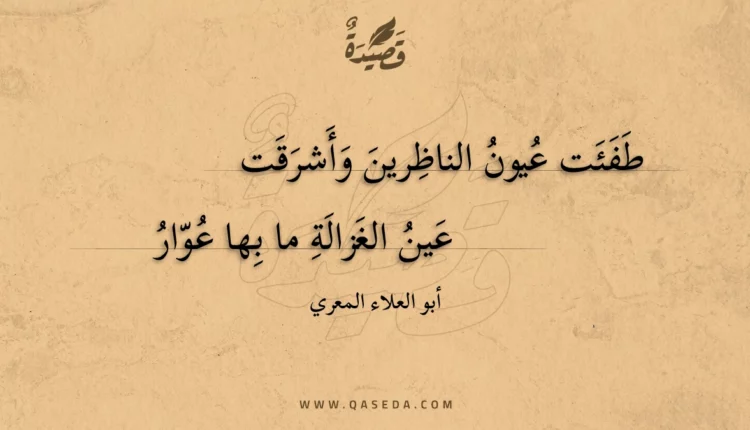 قَصِيْدَةٌ
طَفَئَت عُيونُ الناظِرينَ وَأَشرَقَت
عَينُ الغَزالَةِ ما بِها عُوّارُ
أبو العلاء المعري
WWW.QASEDA.COM